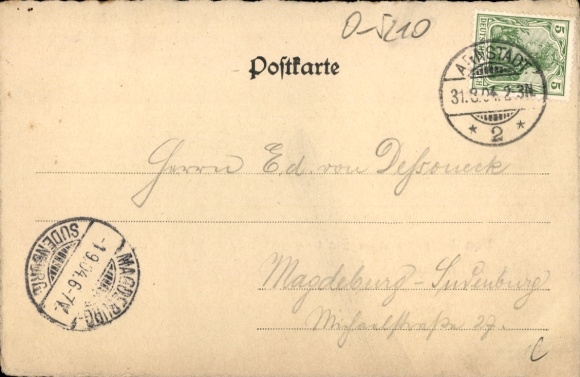 O-5210
Postkarte
5 5
DEUTSCHES
ARNSTADT
31.8.04. 2-3N.
* 2 *
Herrn Ed. von Dessoneck
MAGDEBURG-
SUDENBURG
-1.9.04. 6-7V.
Magdeburg-Sudenburg
Michaelstraße 27.
C